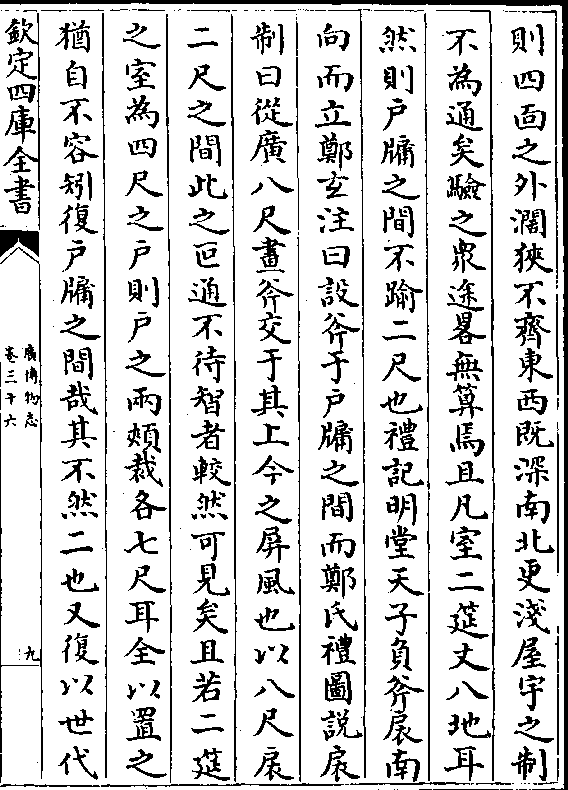 則四面之外濶狹不齊東西既深南北更淺屋宇之制
不為通矣驗之衆途畧無算焉且凡室二筵丈八地耳
然則戶牖之間不踰二尺也禮記明堂天子負斧扆南
向而立鄭玄注曰設斧于戶牖之間而鄭氏禮圖說扆
制曰從廣八尺畫斧交于其上今之屏風也以八尺扆
二尺之間此之叵通不待智者較然可見矣且若二筵
之室為四尺之戶則戶之兩頰裁各七尺耳全以置之
猶自不容矧復戶牖之間哉其不然二也又復以世代
欽定四庫全書
廣博物志
卷三十六
九